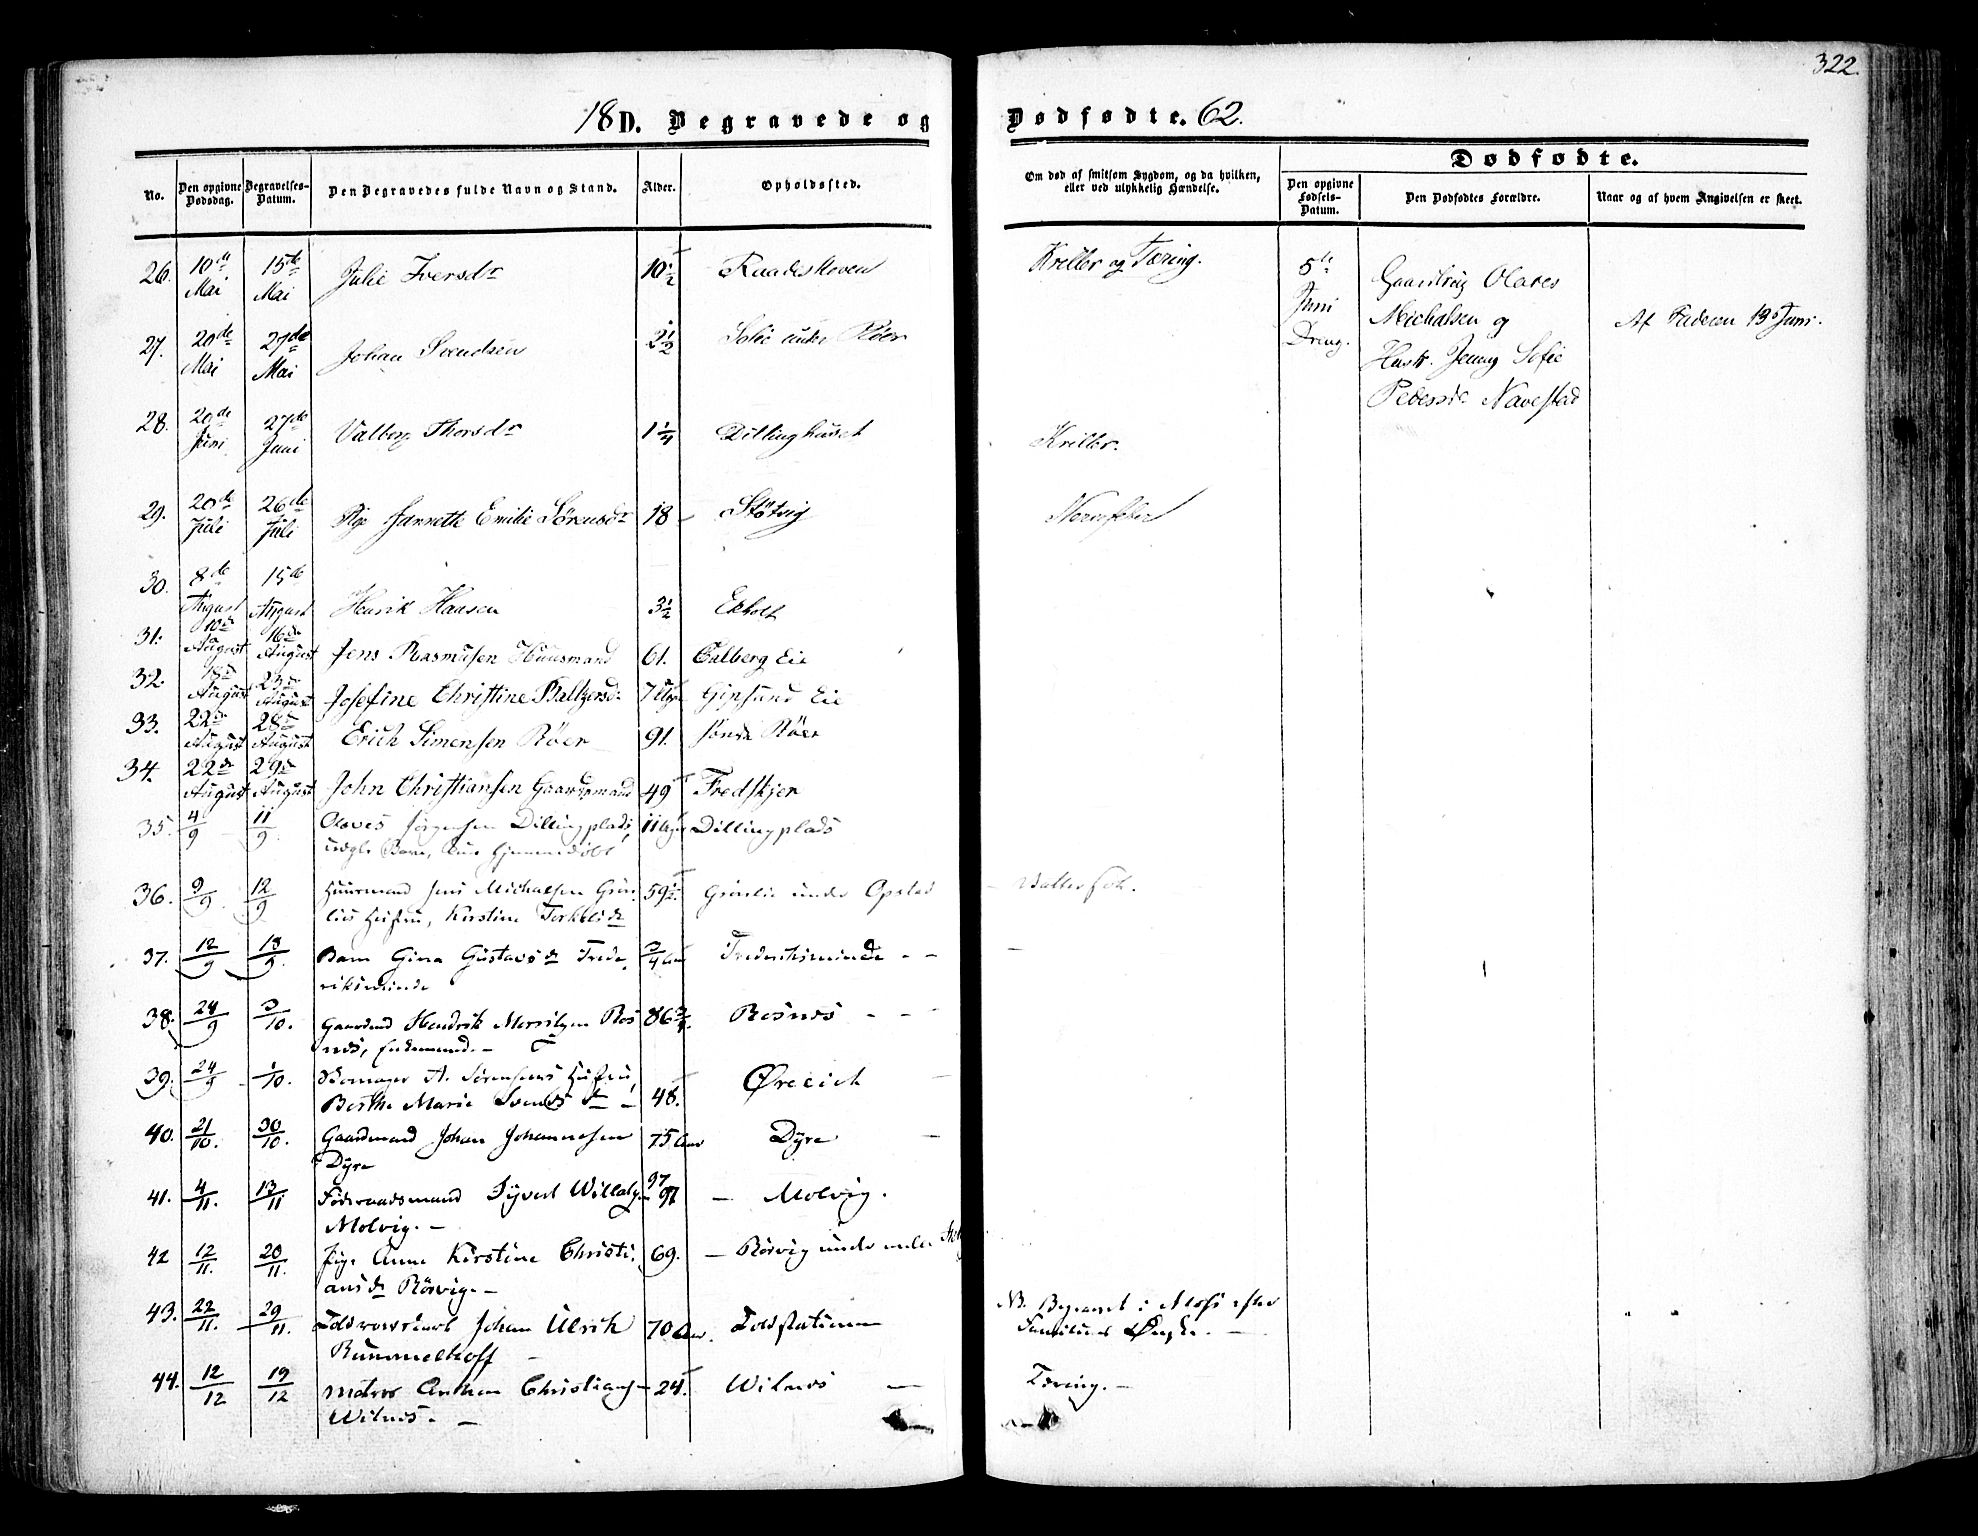 322.
18 D. Begravede og Dødfødte. 62.
No.
Den opgivne Dødsdag.
Begravelses-Datum.
Den Begravedes fulde Navn og Stand.
Alder.
Opholdssted.
Om død af smitsom Sygdom, og da hvilken, eller ved ulykkelig Hændelse.
Dødfødte.
Den opgivne Fødsels-Datum.
Den Dødfødtes Forældre.
Naar og af hvem Angivelsen er skeet.
26. 10de Mai 15de Mai Julie Iversdr 10 1/2 Raadeskoven Kriller og Tæring.
5te Juni Dreng. Olaves Michalsen og Hustr. Jenny Sofie Navestad Af Faderen 13 Juni.
27. 20de Mai 27de Mai Johan Svendsen 2 1/2 Solie under Røer
28. 20de Juni 27de Juni Valborg Thorsdr 1 1/4 Dillinghuset Kriller.
29. 20de Juli 26de Juli Pige Jannette Emilie Sørensdr 18 Støtvig Nervefeber
30. 8de August 15de August Henrik Hansen 3 1/2 Ekholt
31. 10de August 16de August Jens Rasmusen Huusmand 61. Calberg Eie
32. 18de August 23de August Josefine Christine Baltzersdr 7 Uger Gipsund Eie
33. 22de August 28de August Erich Simensen Røer 91. søndre Røer
34. 22de August 29de August John Christiansen Gaardmand 49 Fredskjer
35. 4/9 11/9 Olaves Jørgensen Dillingplads, uægte Barn, Hjemmedøbt 11 Uger Dillingplads
36. 9/9 12/9 Huusmand Jens Michalsen Grønlies Hustru, Kirstine Torkelsdr 59 1/2. Grønlie under Opstad Vattersot.
37. 12/9 19/9. Barn Gina Gustavsdr Frederiksminde 3/4 Aar Frederiksminde - -
38. 24/9 3/10. Gaardmd Hendrik Rosnes, Enkemand. - 86 3/4. Rosnes - - -
39. 24/9 1/10. A. Sørensens Hustru, Berthe Marie Svendsdr - 48. Øreeie
40. 21/10. 30/10. Gaardmand Johan Johannesen Dyre 75 Aar Dyre
41. 4/11. 13/11 Føderaadsmand Syvert Molvig. - 97 - Molvig.
42 12/11. 20/11. Pige Anne Kirstine Christiansdr Rørvig. - 69. - Rørvig under
43. 22/11. 29/11. Johan Ulrik Rummelhoff 70 Aar. Toldstationen NB. Begravet i Moss efter Familiens Ønske. -
44. 12/12 19/12 Matros Anton Christians- Wilnes. - 24. Wilnes - Tæring. -